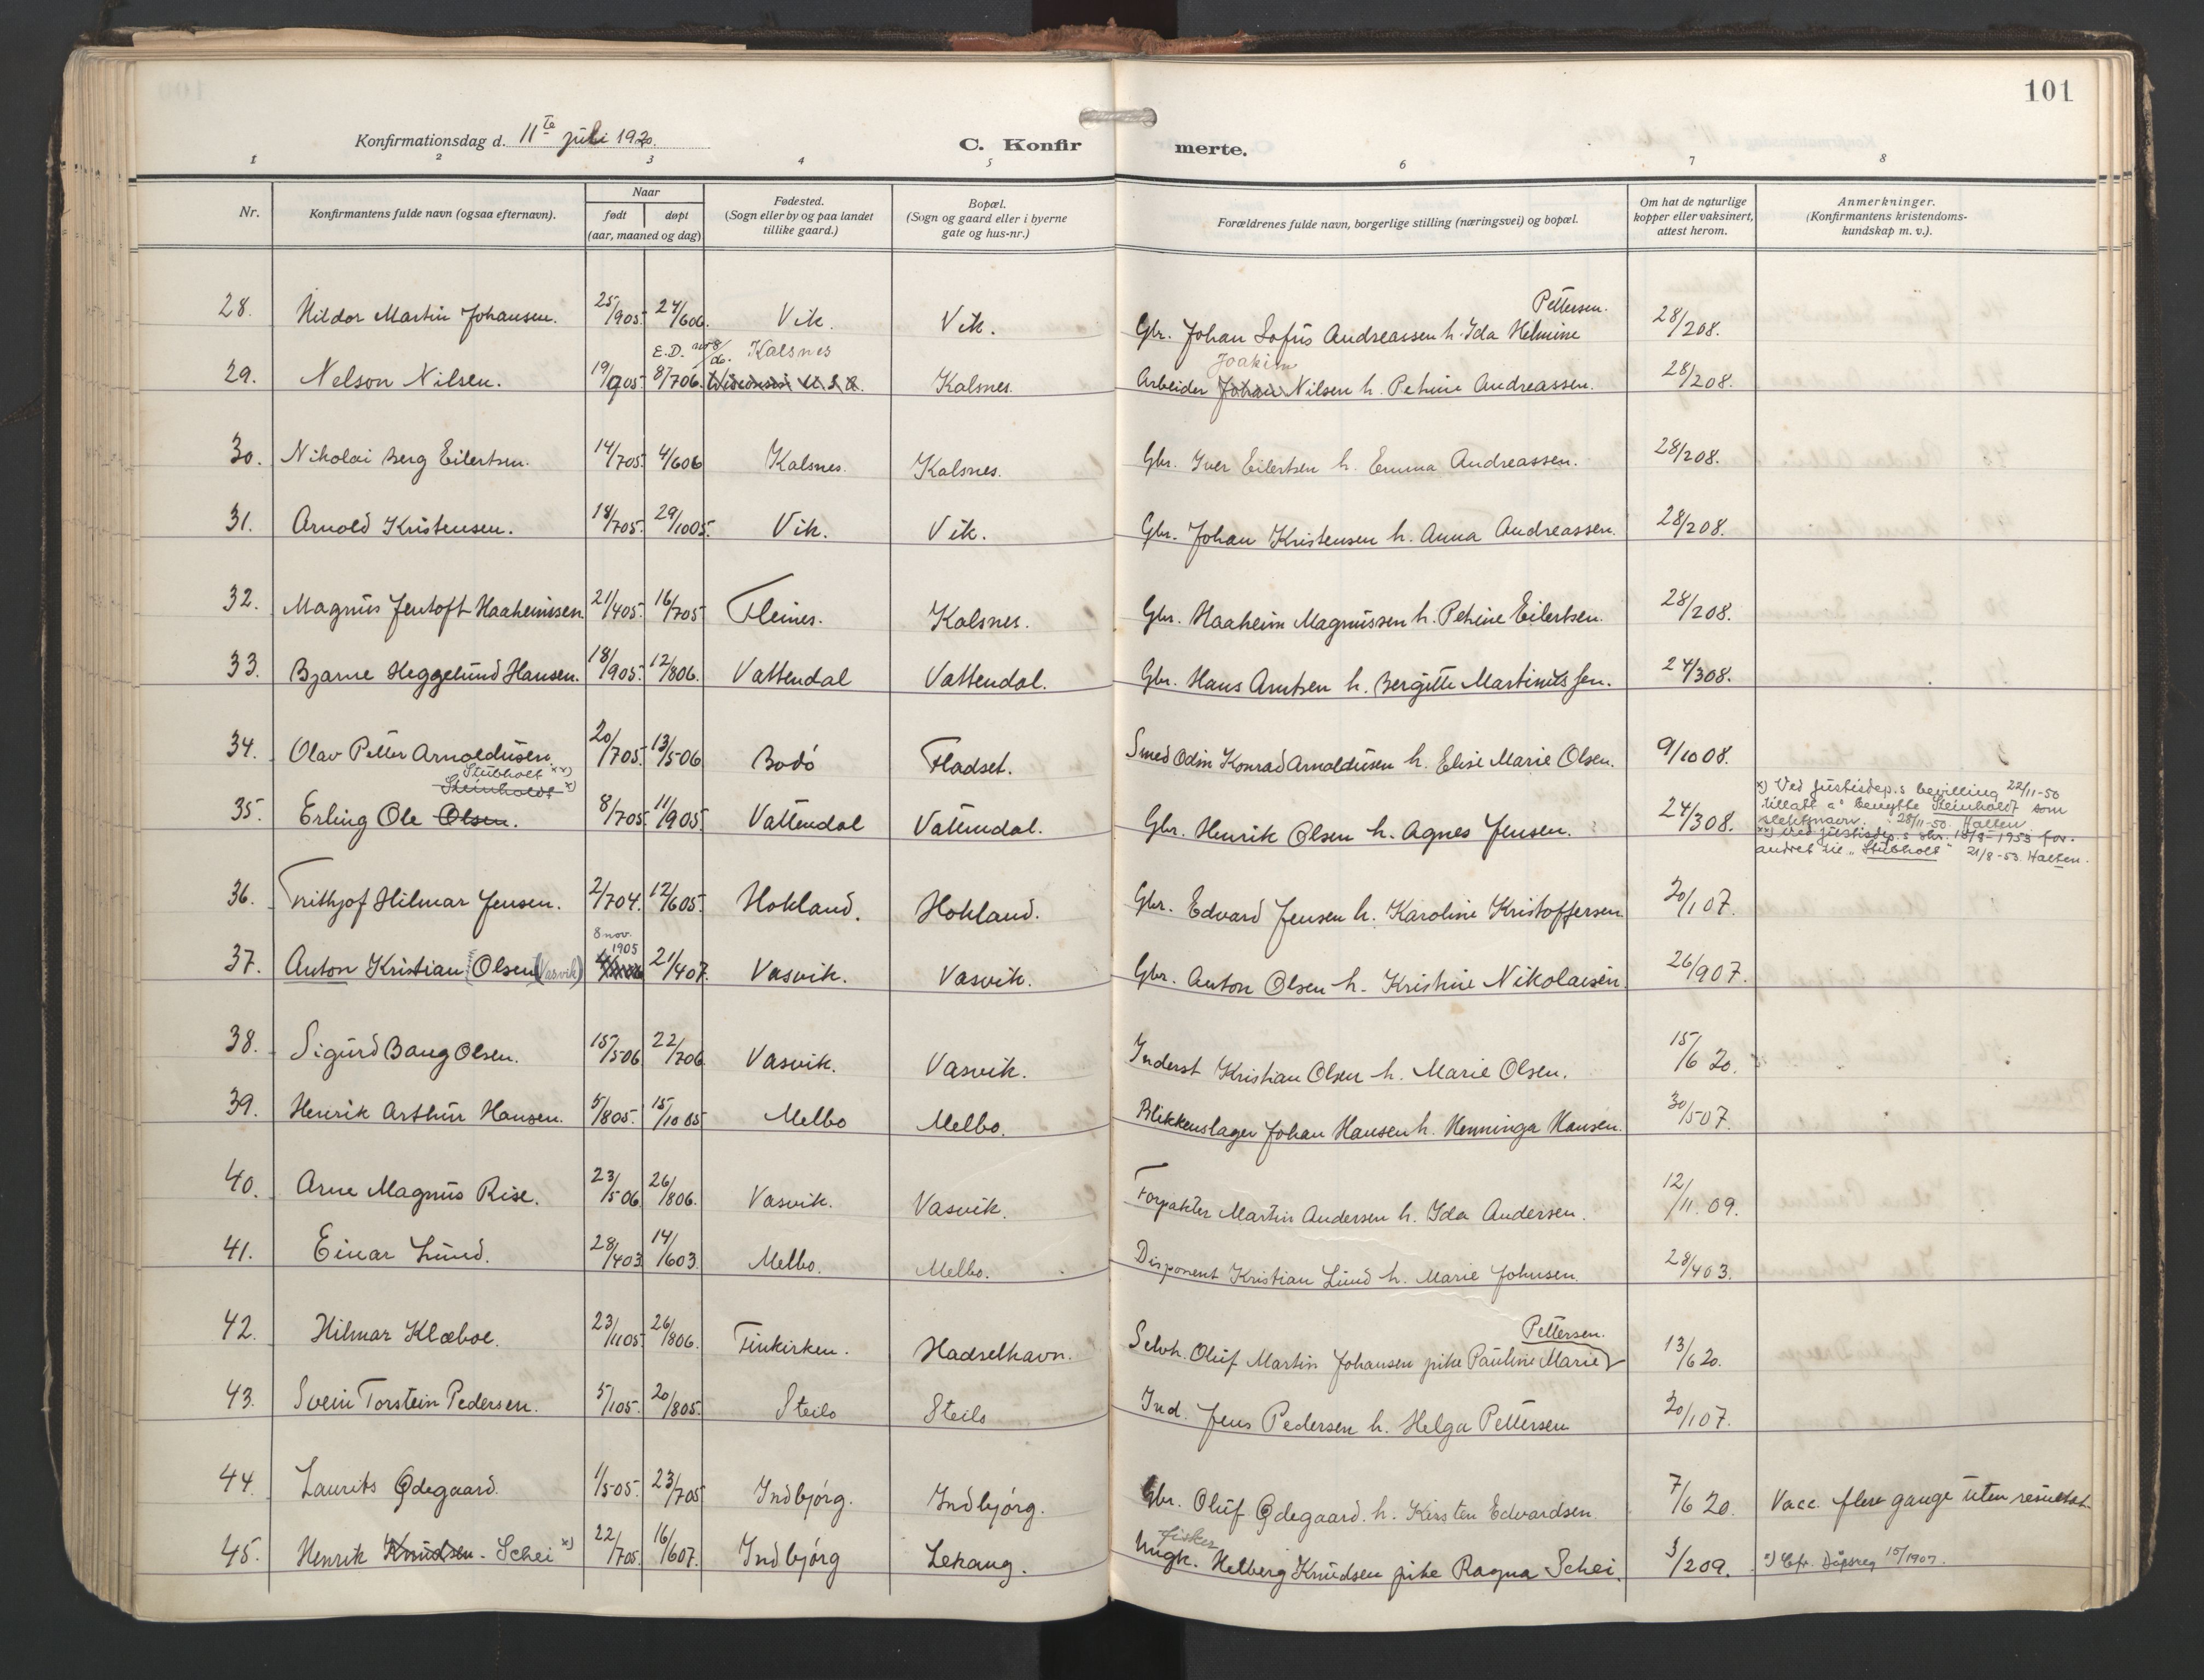 101
Konfirmationsdag d. 11te juli 1920.
C. Konfirmerte.
1 2 3 4 5 6 7 8
Nr. Konfirmantens fulde navn (ogsaa efternavn). Naar født døpt (aar, maaned og dag) Fødested. (Sogn eller by og paa landet tillike gaard.) Bopæl. (Sogn og gaard eller i byerne gate og hus-nr.) Forældrenes fulde navn, borgerlige stilling (næringsvei) og bopæl. Om hat de naturlige kopper eller vaksinert, attest herom. Anmerkninger. (Konfirmantens kristendoms-kundskap m. v.).
28. Hildor Martin Johansen. 25/905. 24/606. Vik. Vik. Gbr. Johan Lofus Andreassen h. Ida Helmine Pettersen. 28/208.
29. Nelson Nilsen. 19/905. E.D. 8/706. Wisconsin U.S.A. Kalsnes Kalsnes. Arbeider Johan Joakim Nilsen h. Petrine Andreassen. 28/208.
30. Nikolai Berg Eilertsen. 14/705. 4/606 Kalsnes. Kalsnes. Gbr. Iver Eilertsen h. Emma Andreassen. 28/208.
31. Arnold Kristensen. 18/705. 29/1005. Vik. Vik. Gbr. Johan Kristensen h. Anna Andreassen. 28/208.
32. Magnus Jentoft Haaheimssen. 21/405. 16/705 Fleines. Kalsnes. Gbr. Haaheim Magnussen h. Petrine Eilertsen. 28/208.
33. Bjarne Heggelund Hansen. 18/905. 12/806. Vattendal Vattendal. Gbr. Hans Arntsen h. Bergitte Martinussen. 24/308.
34. Olav Petter Arnoldussen. 20/705. 13/506 Bodö Fladset. Smed Odin Konrad Arnoldussen h. Elise Marie Olsen. 9/1008.
Stubholt xx)
Steinholdt x)
35. Erling Ole Olsen. 8/705. 11/905. Vattendal Vattendal. Gbr. Henrik Olsen h. Agnes Jensen. 24/308.
x) Ved justisdep.s bevilling 22/11-50
tillatt a° benytte Steinholdt som
slektsnavn. 28/11-50. Halten
xx) Ved justisdep.s skr. 18/8-1953 for-
andret til "Stubholt" 21/8-53. Halten.
36. Frithjof Hilmar Jensen. 2/704. 12/605. Hokland. Hokland. Gbr. Edvard Jensen h. Karoline Kristoffersen 20/107.
37. Anton Kristian (Olsen) (Vasvik) 8 nov. 1905 21/407. Vasvik. Vasvik. Gbr. Anton Olsen h. Kristine Nikolaisen. 26/907.
38. Sigurd Baug Olsen. 15/506 22/706 Vasvik. Vasvik. Inderst Kristian Olsen h. Marie Olsen. 15/6 20.
39. Henrik Arthur Hansen. 5/805. 15/1005 Melbo Melbo. Blikkenslager Johan Hansen h. Henninga Hansen. 30/507.
40. Arne Magnus Rise. 23/506 26/806. Vasvik. Vasvik. Forpakter Martin Andersen h. Ida Andersen. 12/11.09.
41. Einar Lund. 28/403 14/603. Melbo. Melbo. Disponent Kristian Lund h. Marie Johnsen. 28/403.
42. Hilmar Klæboe. 23/1105. 26/806. Finkirken. Hadselhavn. Selvh. Oluf Martin Johansen pike Pauline Marie Pettersen. 13/6 20.
43. Svein Torstein Pedersen. 5/105. 20/805. Steilo Steilo Ind. Jens Pedersen h. Helga Pettersen 20/107.
44. Laurits Ødegaard. 1/505. 23/705 Indbjörg. Indbjörg. Gbr. Oluf Ødegaard. h. Kirsten Edvardsen. 7/6 20. Vacc. flere gange uten resultat.
45. Henrik Knudsen. Schei x) 22/705. 16/607. Indbjörg Lekang. Ungk. fisker Helberg Knudsen pike Ragna Schei. 3/209. x) Cfr. Dåpsreg 15/1907.